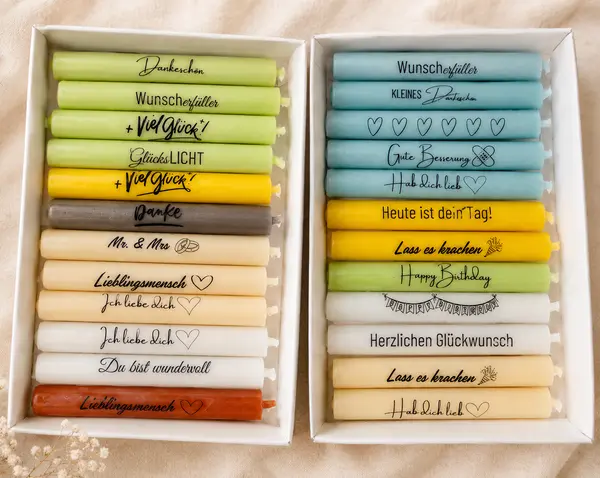 Dankeschön
Wunscherfüller
+ Viel Glück+!
GlücksLICHT
+ Viel Glück+!
Danke
Mr. & Mrs
Lieblingsmensch
Ich liebe dich
Ich liebe dich
Du bist wundervoll
Lieblingsmensch
Wunscherfüller
KLEINES Dankeschön
Gute Besserung
Hab dich lieb
Heute ist dein Tag!
Lass es krachen
Happy Birthday
HAPPY BIRTHDAY
Herzlichen Glückwunsch
Lass es krachen
Hab dich lieb